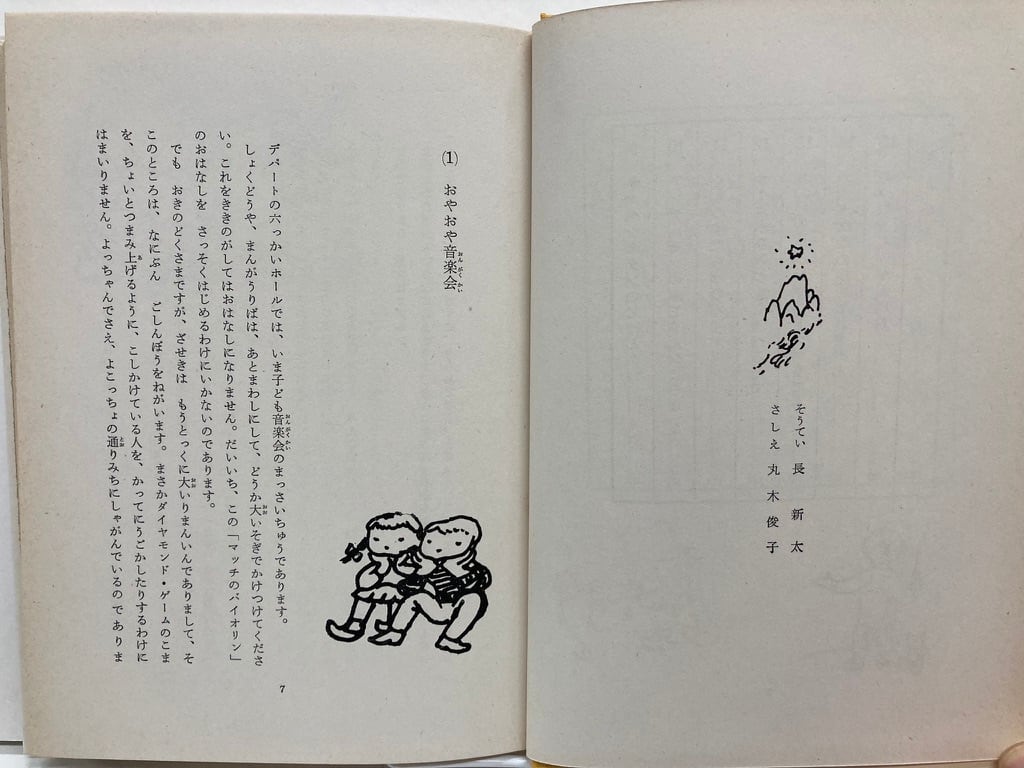 そうてい 長新太
さしえ 丸木俊子
(1) おやおや音楽会
デパートの六っかいホールでは、いま子ども音楽会のまっさいちゅうであります。
しょくどうや、まんがうりばは、あとまわしにして、どうか大いそぎでかけつけてくださ
い。これをききのがしてはおはなしになりません。だいいち、この「マッチのバイオリン」
のおはなしを　さっそくはじめるわけにいかないのであります。
でも　おきのどくさまですが、ざせきは　もうとっくに大いりまんいんでありまして、そ
このところは、なにぶん　ごしんぼうをねがいます。まさかダイヤモンド・ゲームのこま
を、ちょいとつまみ上げるように、こしかけている人を、かってにうごかしたりするわけに
はまいりません。よっちゃんでさえ、よこっちょの通りみちにしゃがんでいるのでありま
7